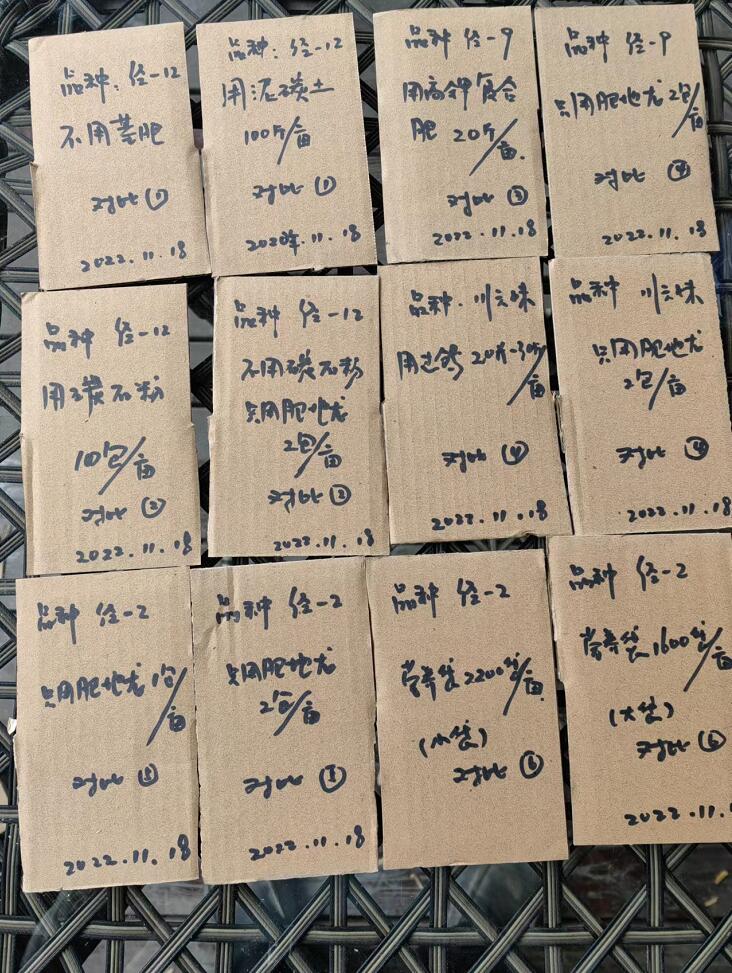 品种：径-12
不用基肥
对比①
2022.11.18
品种：径-12
用泥碳土
100斤/亩
对比①
2022年.11.18
品种 径-9
用高钾复合
肥 20斤/亩.
对比③
2022.11.18
品种 径-9
只用肥地龙2包/亩
对比
2022.11.18
品种 径-12
用碳石粉
10包/亩
对比②
2022.11.18
品种 径-12
不用碳石粉
只用肥地龙
2包/亩
对比②
2022.11.18
品种.川六味
20斤-30斤/亩
对比④
2022.11.18
品种 川六味
只用肥地龙
2包/亩
对比④
2022.11.18
品种 径-2
只用肥地龙1包/亩
对比⑤
2022.11.18
品种 径-2
只用肥地龙
2包/亩
对比⑤
2022.11.18
品种 径-2
营养袋2200袋/亩
(小袋)
对比⑥
品种 径-2
营养袋1600袋/亩
(大袋)
对比⑥
2022.11.